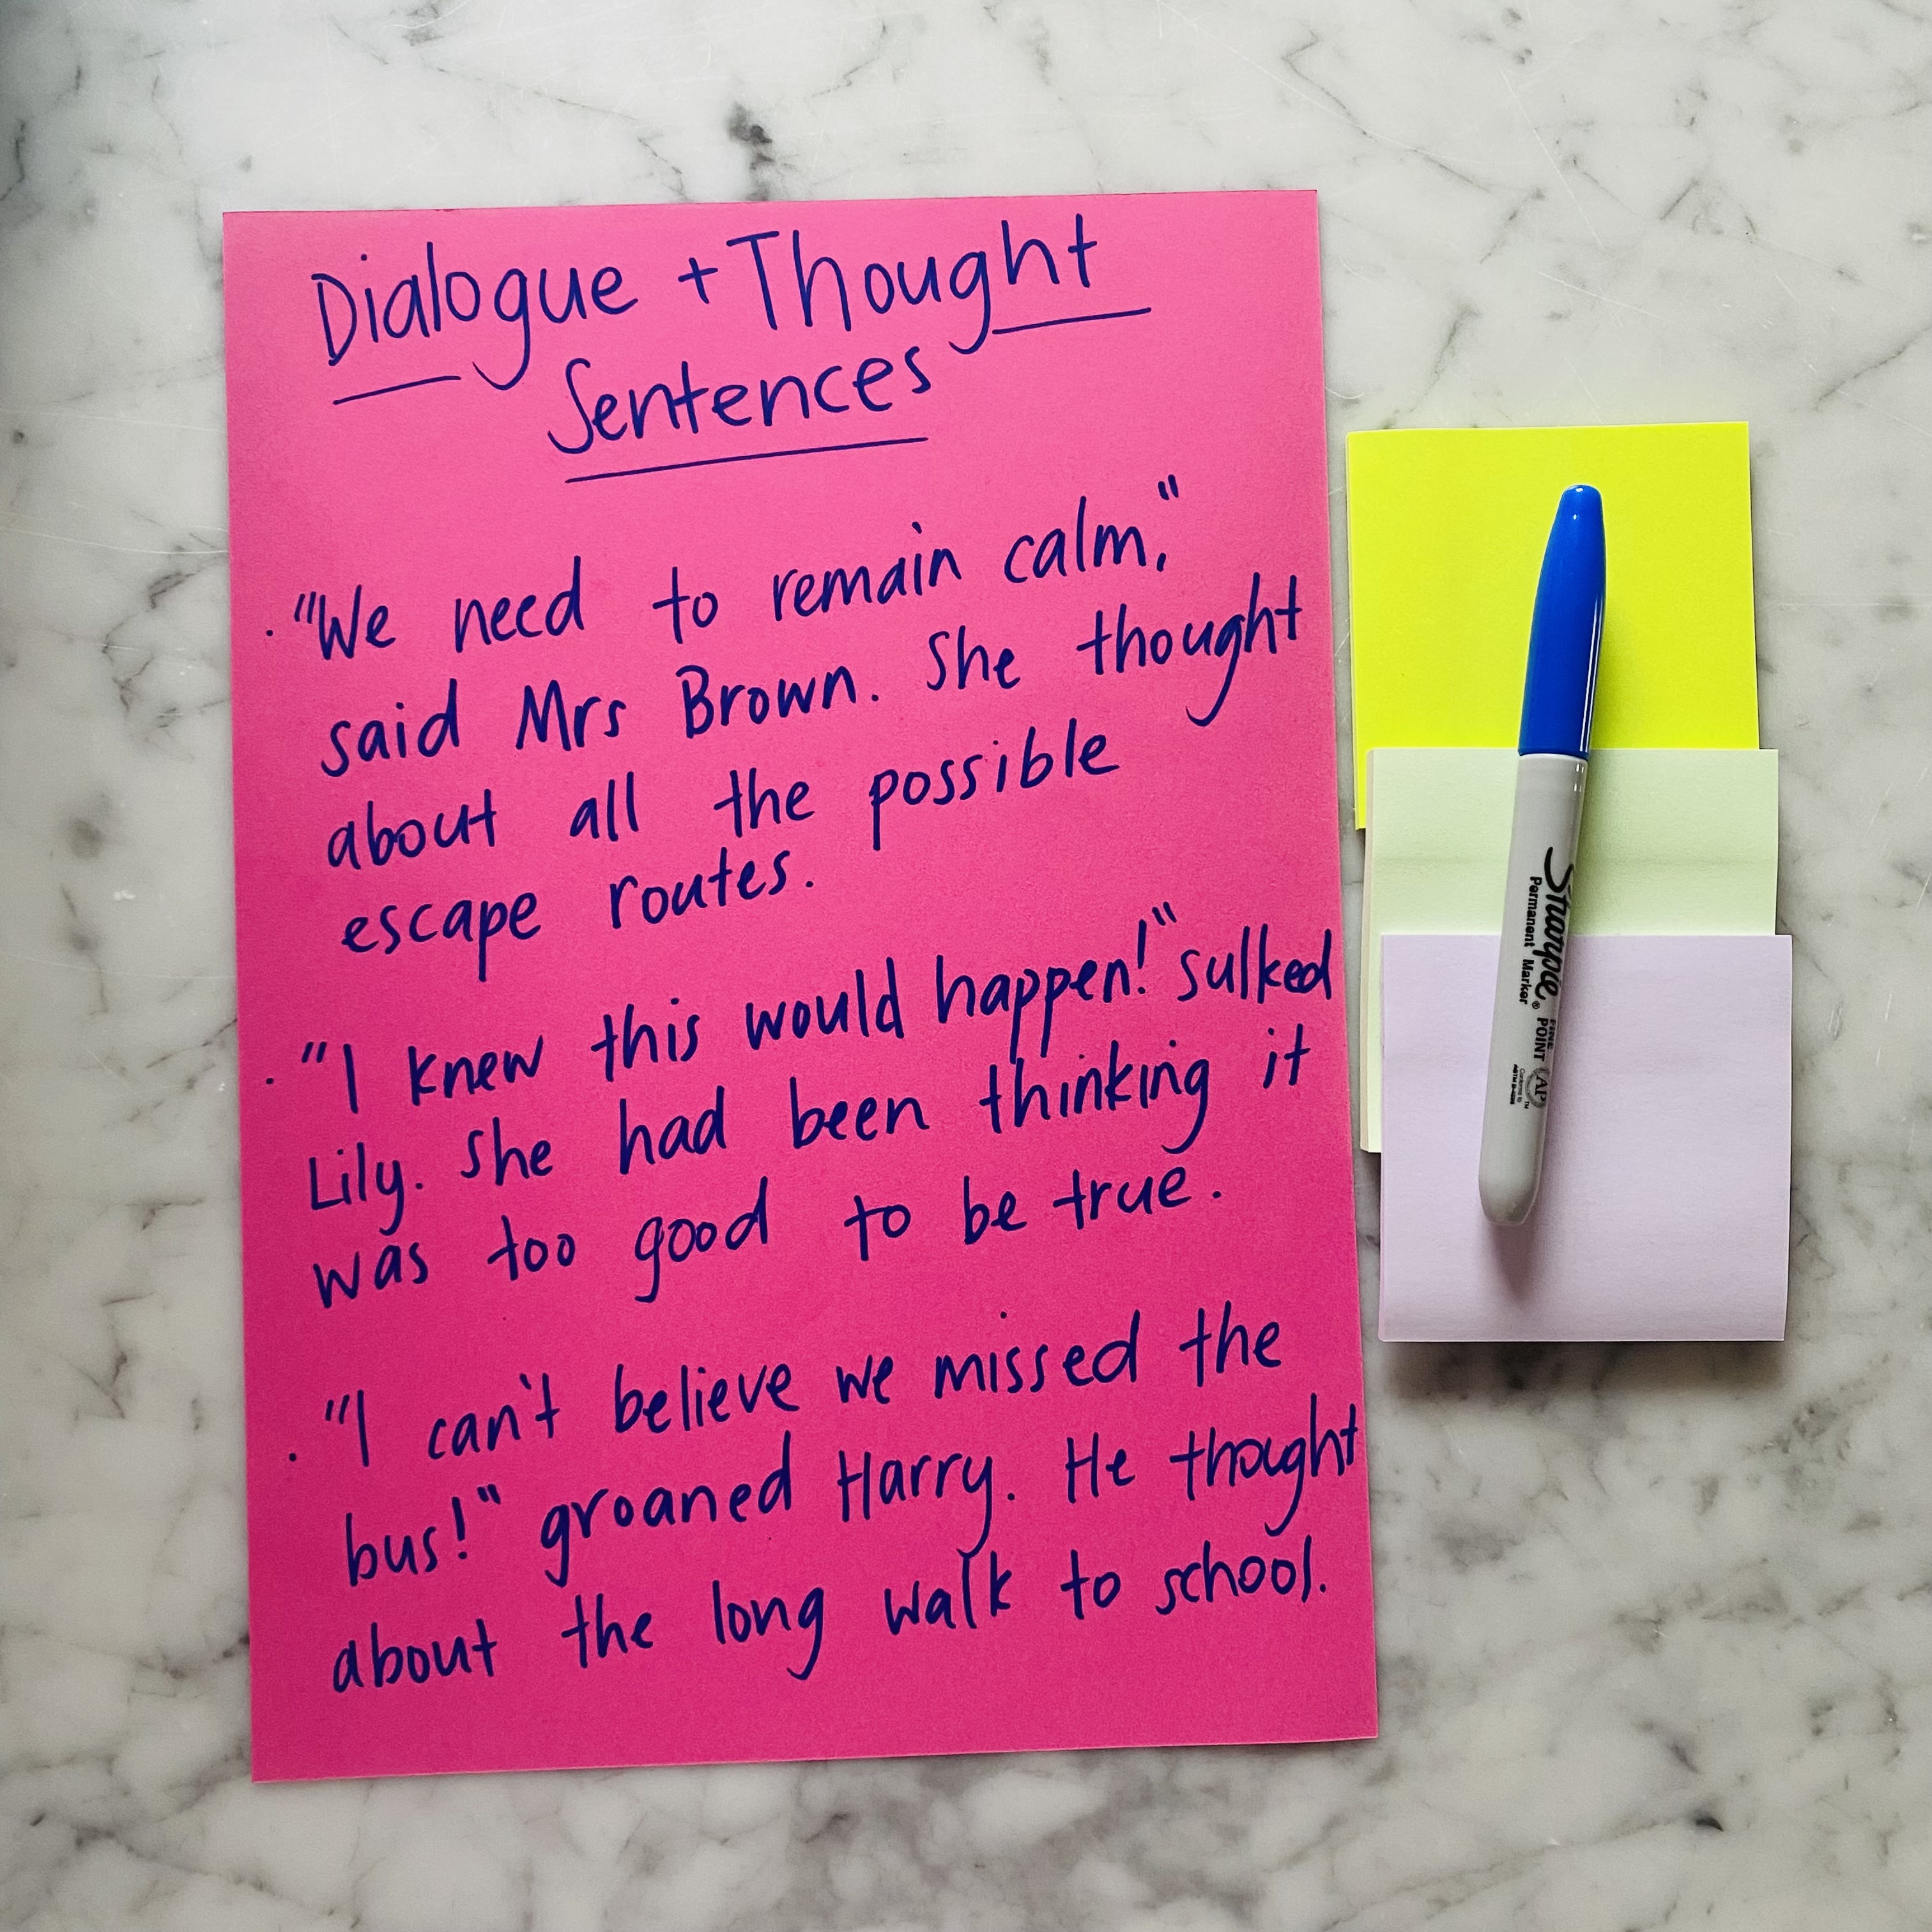 Dialogue + Thought
Sentences
· "We need to remain calm,"
said Mrs Brown. She thought
about all the possible
escape routes.
· "I knew this would happen!" sulked
Lily. She had been thinking it
was too good to be true.
· "I can't believe we missed the
bus!" groaned Harry. He thought
about the long walk to school.
Sharpie®
Permanent Marker
FINE POINT
AP